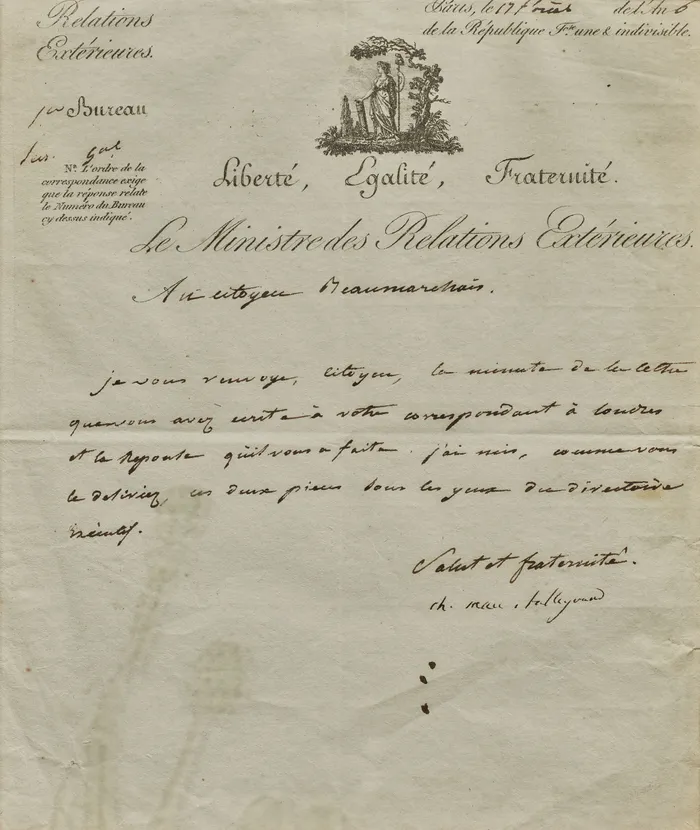 Relations
Extérieures.
Paris, le 17 de l'An 6
de la République Fse. une & indivisible.
Bureau
Nª. L'ordre de la
correspondance exige
que la réponse relate
le Numéro du Bureau
cy dessus indiqué.
Liberté, Egalité, Fraternité.
Le Ministre des Relations Extérieures.
Au citoyen Beaumarchais.
je vous renvoye, Citoyen, la minute de la lettre
que vous avez ecrite à votre correspondant à Londres
et la Reponse qu'il vous a faite. j'ai mis, comme vous
le desiriez, ces deux pieces sous les yeux du directoire
Exécutif.
Salut et fraternité.
ch. mau. talleyrand